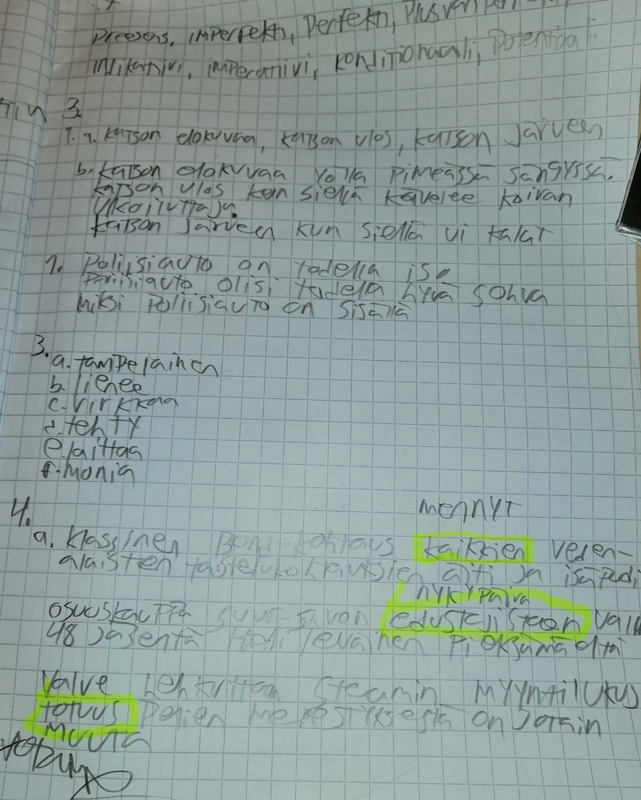 Preesens, imperfekti, Perfekti, Plusqvam
indikativi, imperativi, konditionaali, Potentiaali
3.
1. a. Katson elokuvaa, katson ulos, katson Järveen
b. Katson elokuvaa yöllä Pimeässä Sängyssä.
katson ulos kun siellä kävelee koiran
ulkoiluttaja.
katson Järveen kun siellä ui kalat
1. Poliisiauto on todella iso
olisi todella hyvä sohva
miksi Poliisiauto on sisällä
3.
a. tampelainen
b. lienee
c. virkkaa
d. tehty
e. laittaa
f. monia
mennyt
4.
a. klassinen Bond-kohtaus kaikkien veren-
alaisten äiti ja isäpuoli
nykypäivä
osuuskauppa Suur-Savon edustajistoon
48 Jäsentä Pieksämäeltä
Valve Steamin myyntilukus
totuus Pelien menestyksestä on Jotain
muuta